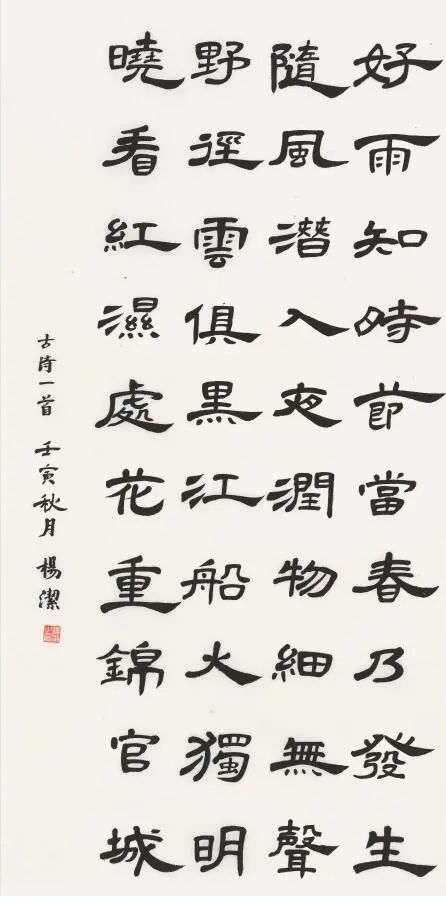 好雨知時節當春乃發生
隨風潛入夜潤物細無聲
野徑雲俱黑江船火獨明
曉看紅濕處花重錦官城
古诗一首 壬寅秋月 楊潔